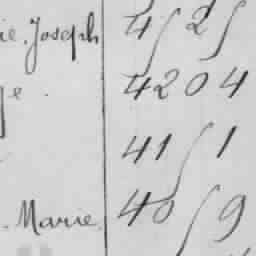 ie. Joseph 4 / 2 /
e. 4204
41 / 1
. Marie. 40 / 9